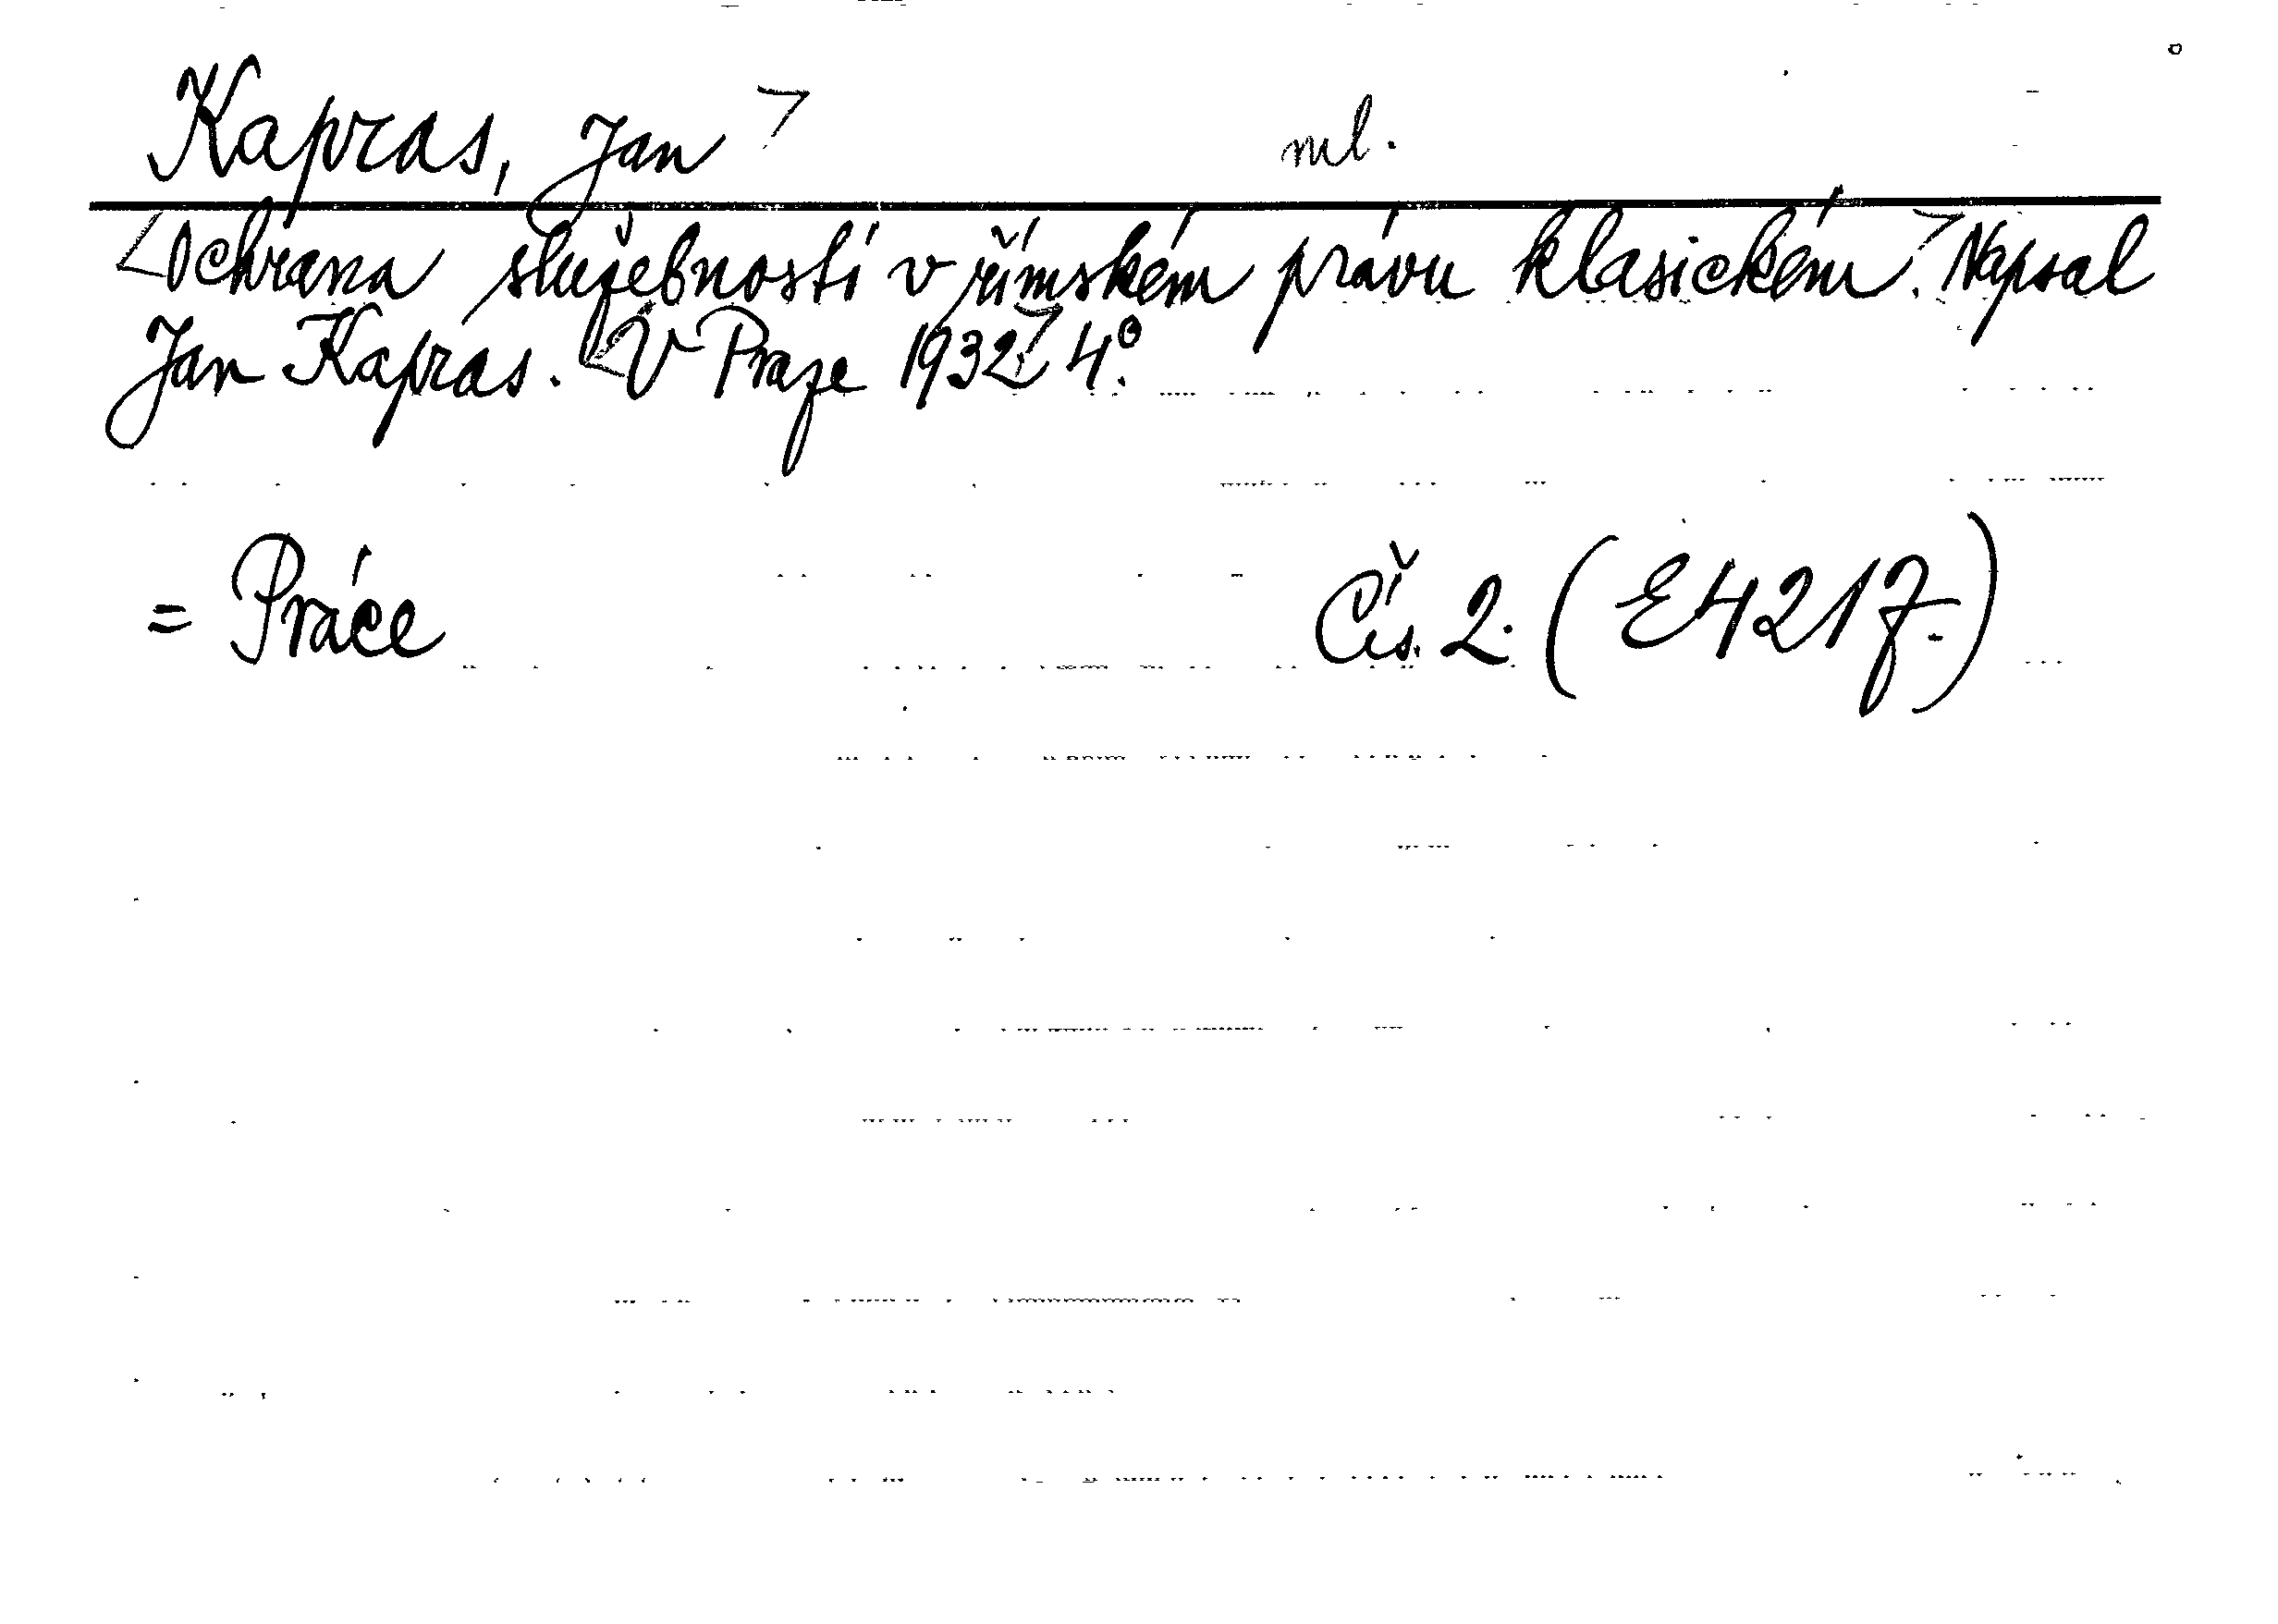 Kapras, Jan ml.
Ochrana služebností v římském právu klasickém. Napsal
Jan Kapras. V Praze 1932. 4°.
= Práce Čís. 2. (E 4217.)